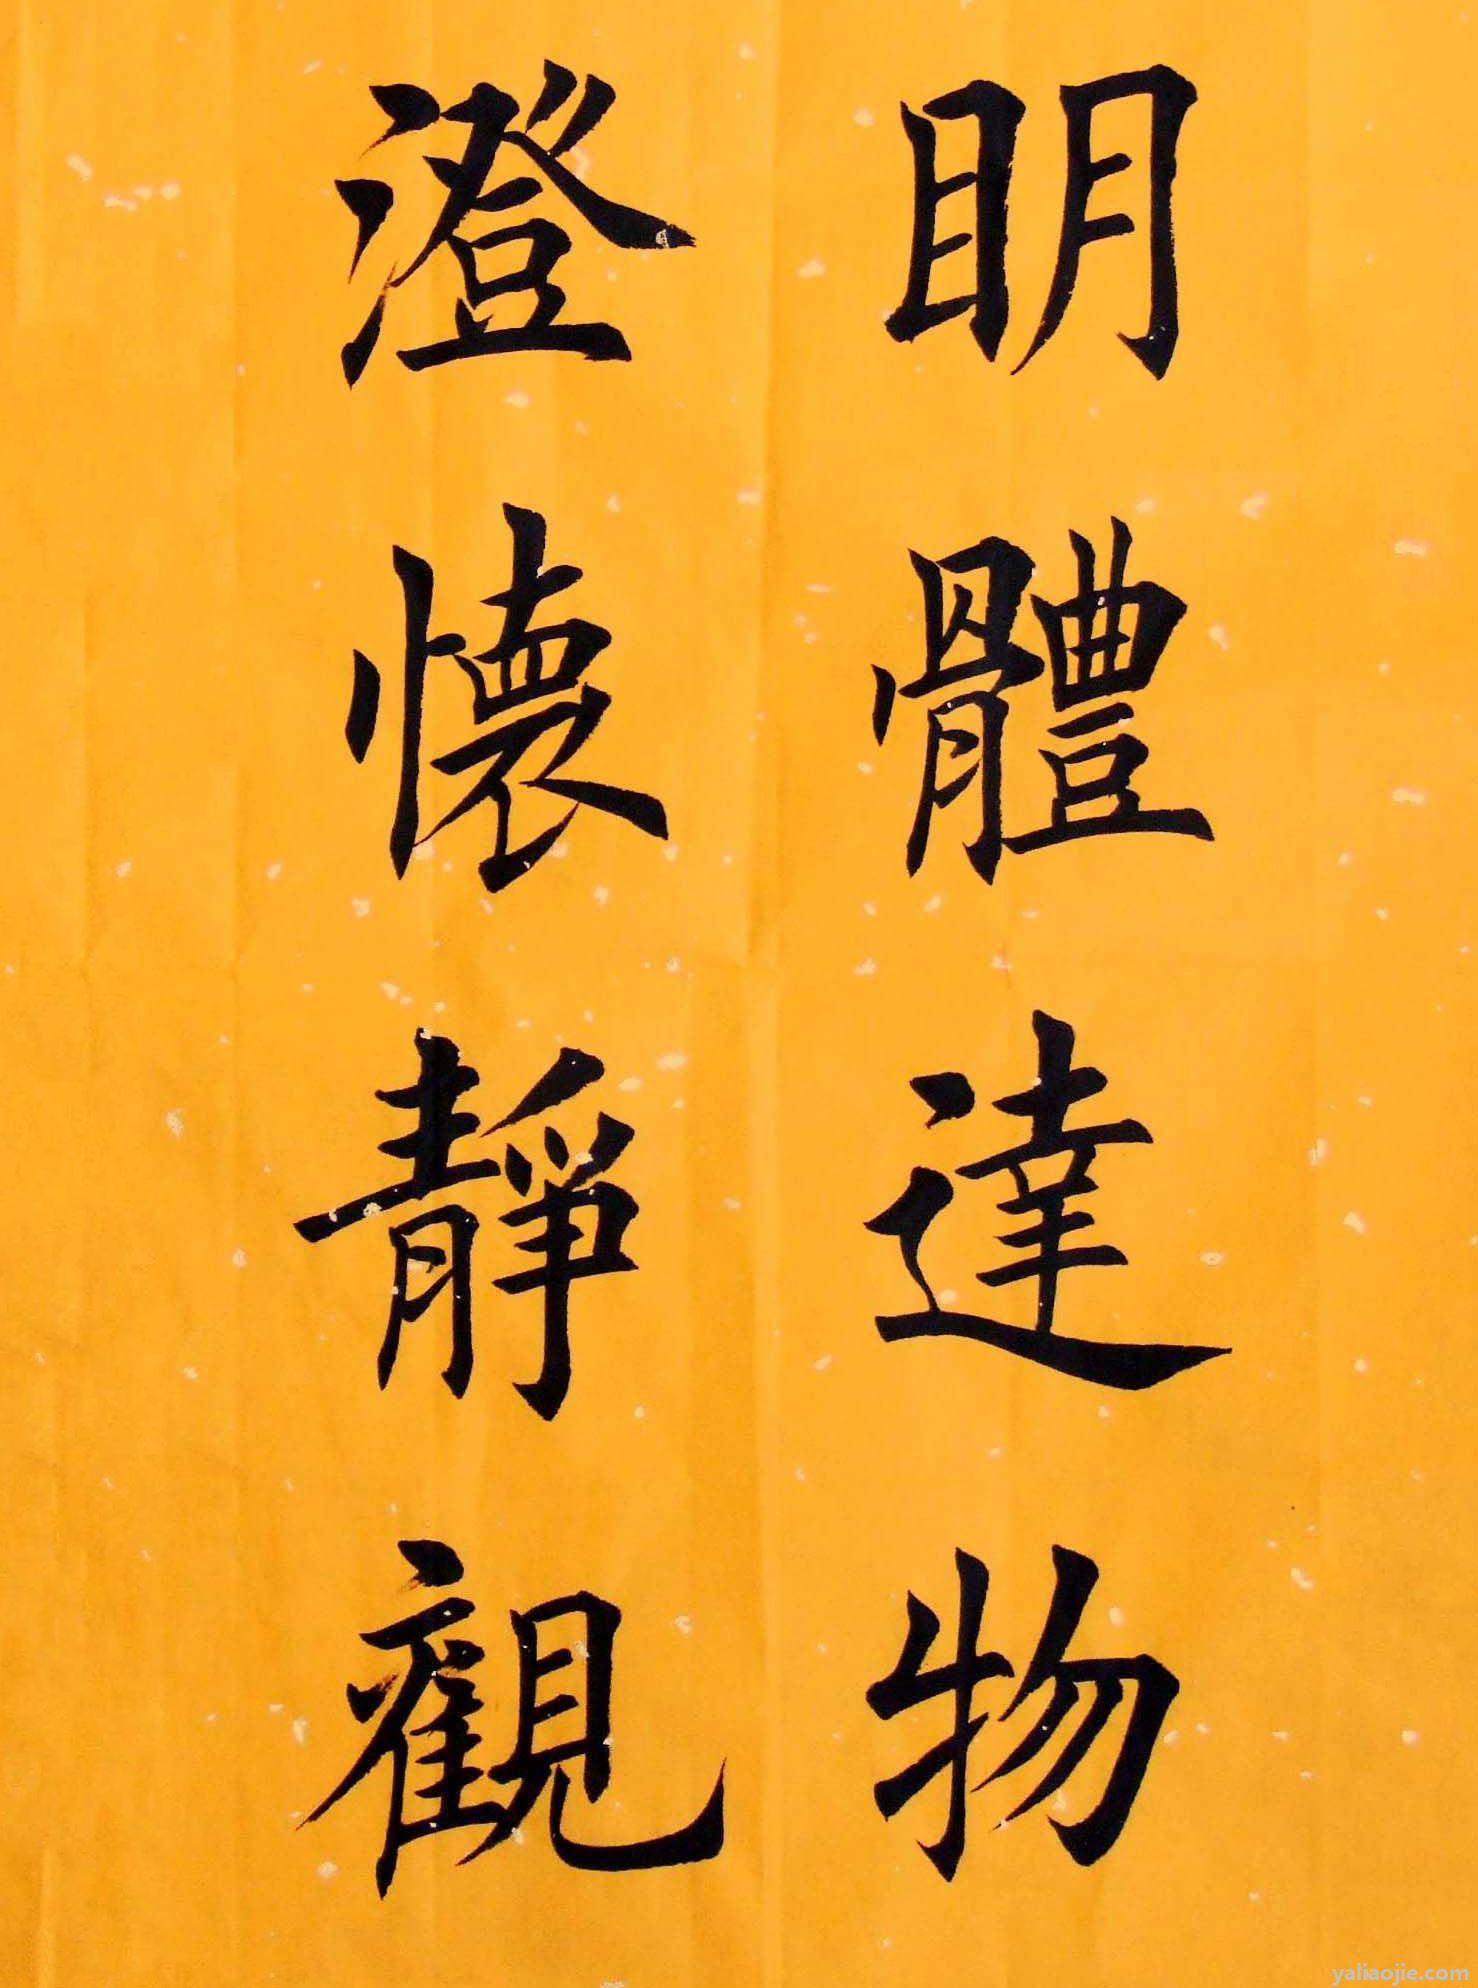 明體達物
澄懷靜觀
yaliaojie.com